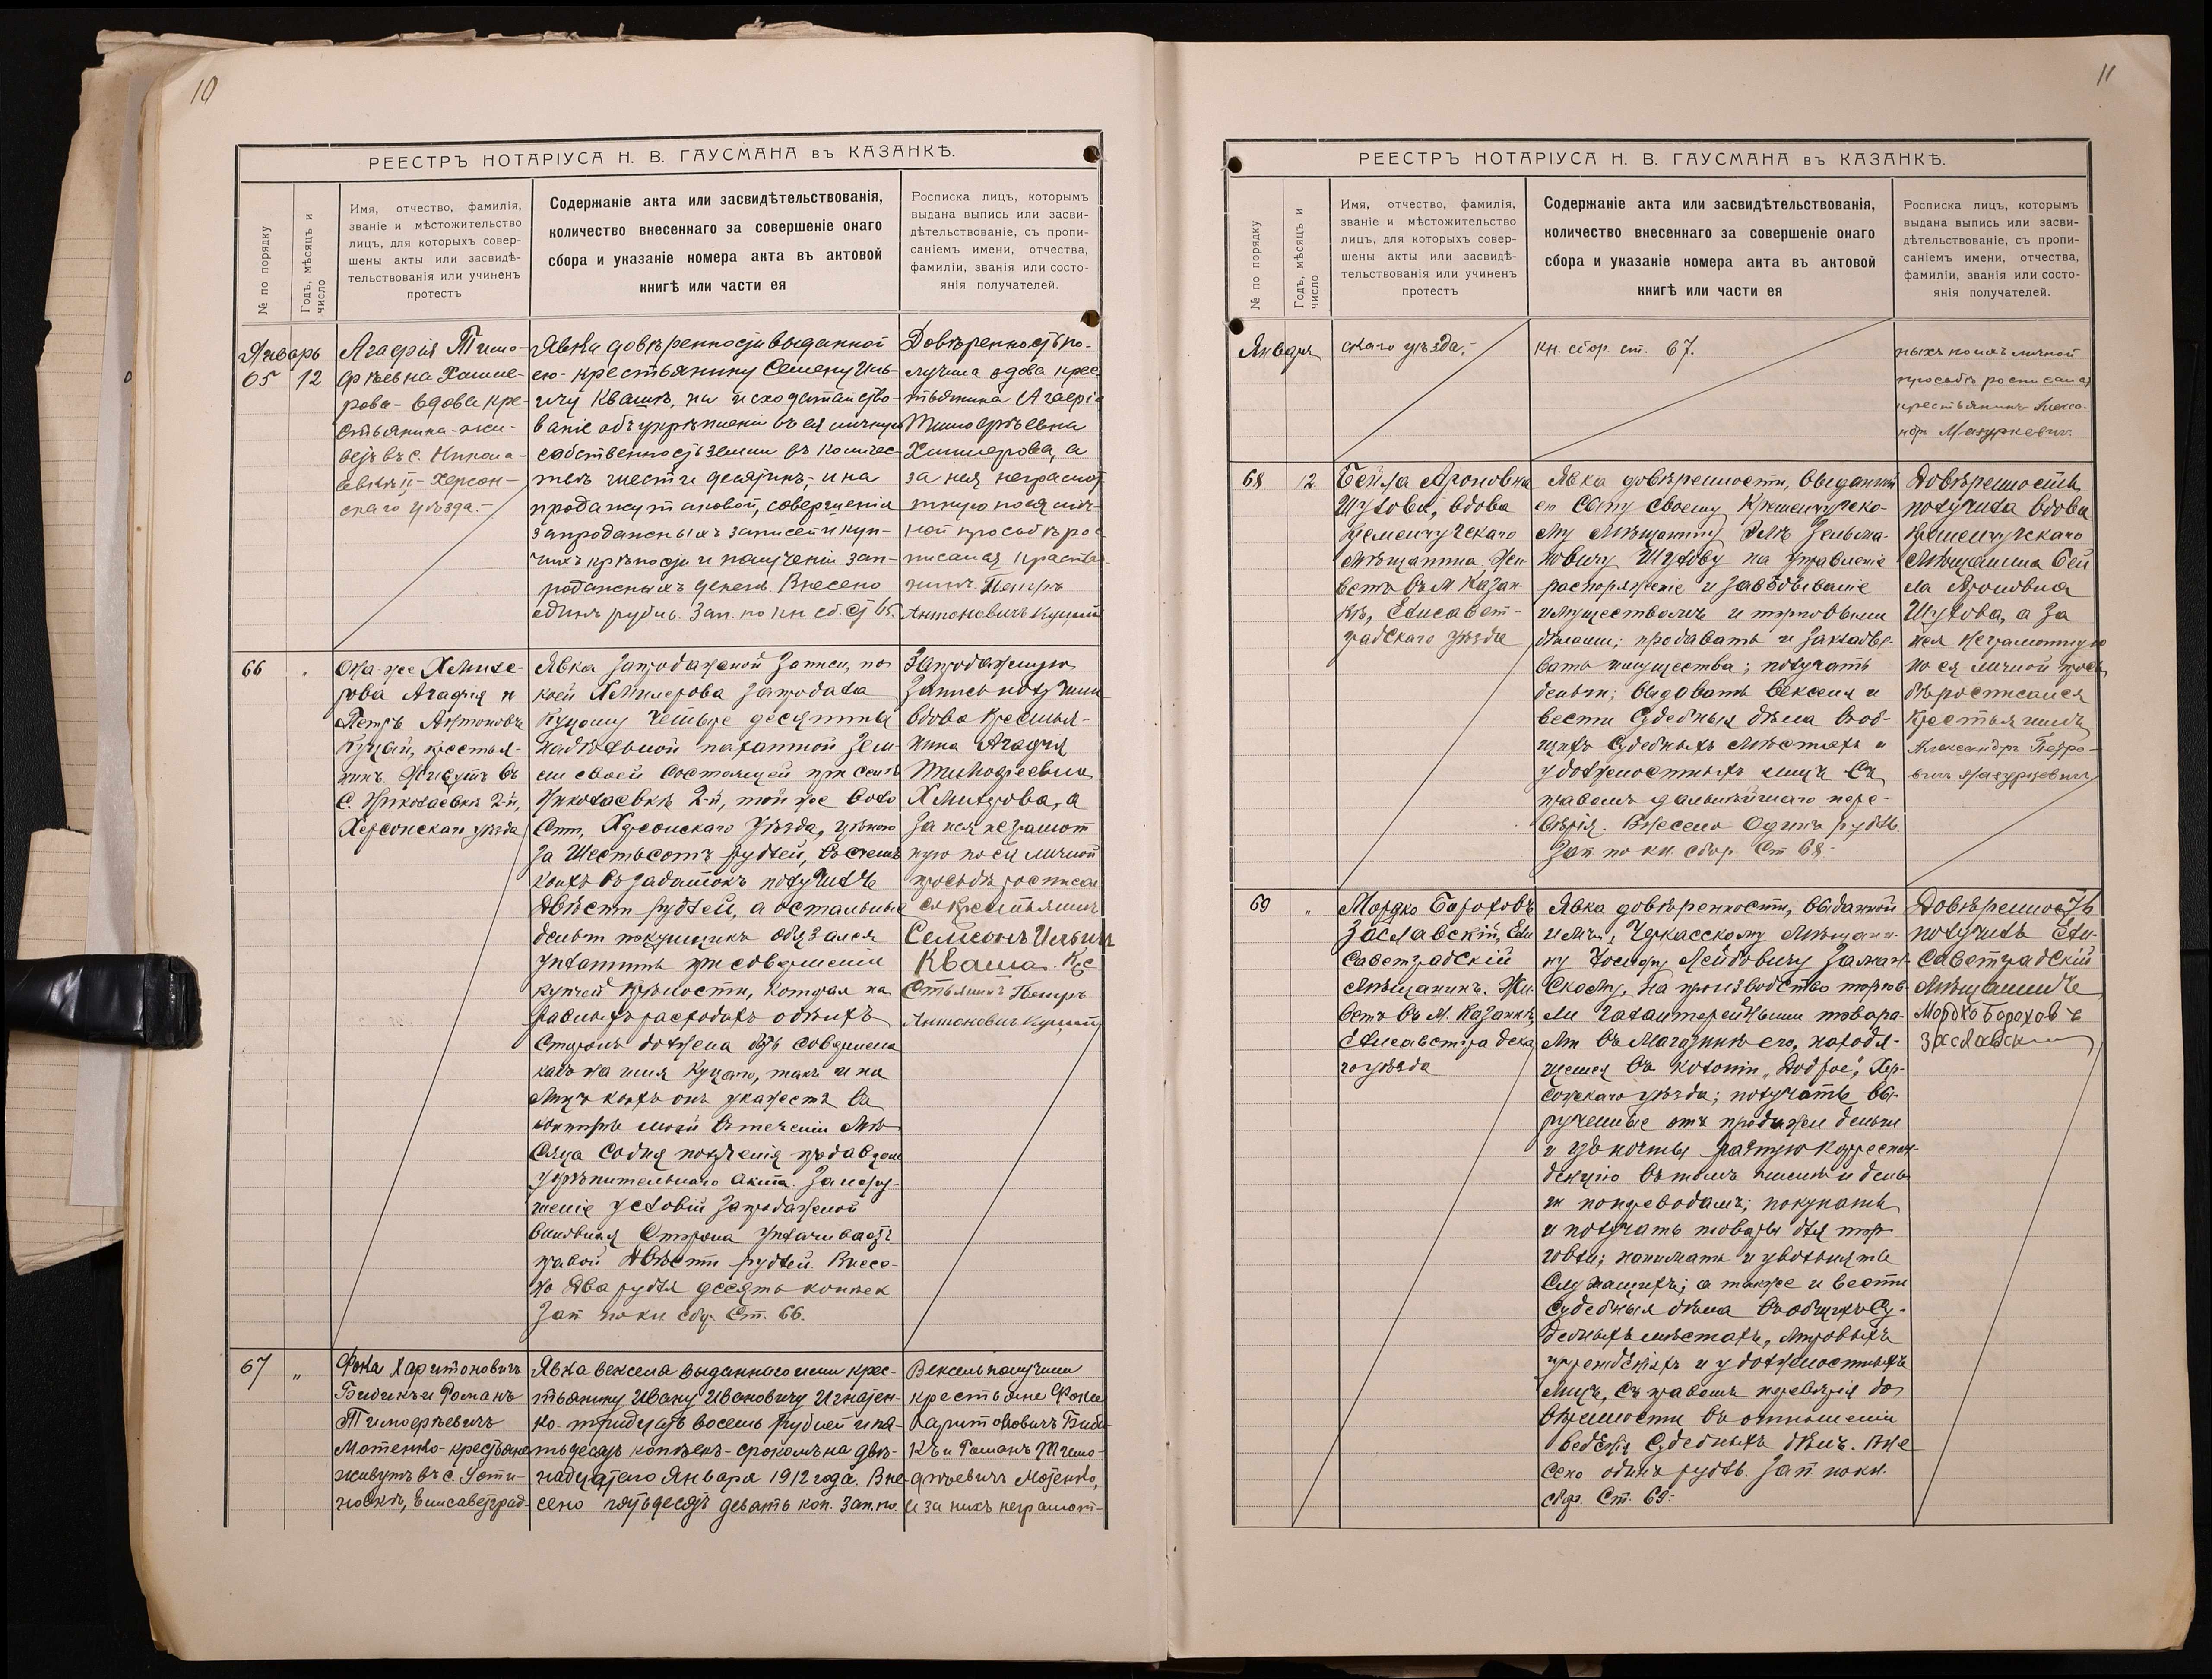 10
РЕЕСТРЪ НОТАРІУСА Н. В. ГАУСМАНА въ КАЗАНКѢ.
№ по порядку
Годъ, мѣсяцъ и
число
Имя, отчество, фамилія,
званіе и мѣстожительство
лицъ, для которыхъ совер-
шены акты или засвидѣ-
тельствованія или учиненъ
протестъ
Содержаніе акта или засвидѣтельствованія,
количество внесеннаго за совершеніе онаго
сбора и указаніе номера акта въ актовой
книгѣ или части ея
Росписка лицъ, которымъ
выдана выпись или засви-
дѣтельствованіе, съ пропи-
саніемъ имени, отчества,
фамиліи, званія или состо-
янія получателей.
Январь
65 12
Агафія Тимо-
фѣевна
рова - вдова кре-
стьянина - жи-
ветъ въ с. Никола-
евкѣ II - Херсон-
скаго уѣзда.-
Явка довѣренности выданной
ею - крестьянину Семену Иль-
ичу Квашѣ, на исходатайство-
ваніе объ укрѣпленіи въ ея личную
собственность земли въ количес-
твѣ шести десятинъ, - и на
продажу таковой, совершенія
запродажныхъ записей и куп-
чихъ крѣпости и полученіи зап-
родажныхъ денегъ. Внесено
одинъ рубль. Зап. по кн сб. ст 65.
Довѣренность по-
лучила вдова крес
тьянина Агафія
Тимофѣевна
а
за нея неграмот
ную по ея лич-
ной просьбѣ рос
писался крестья
нинъ Петръ
Антоновичъ Куцый
66 "
Она-же Хмиле-
рова Агафія и
Петръ Антоновъ
Куцый, крестья-
нинъ. Живутъ въ
с. Николаевкѣ 2-й,
Херсонскаго уѣзда
Явка запродажной записи, по
коей Хмилерова запродала
Куцому четыре десятины
надѣльной пахатной зем-
ли своей состоящей при селѣ
Николаевкѣ 2-й, той же воло
сти, Херсонскаго уѣзда, цѣною
за шестьсотъ рублей, въ счетъ
коихъ въ задатокъ получилъ
двѣсти рублей, а остальные
деньги покупщикъ обязался
уплатить при совершеніи
купчей крѣпости, которая на
равныхъ расходахъ обѣихъ
сторонъ должна быть совершена
какъ на имя Куцаго, такъ и на
лицъ коихъ онъ укажетъ въ
въ теченіи мѣ
сяца со дня полученія продавцомъ
укрѣпительнаго акта. За нару-
шеніе условій запродажной
виновная сторона уплачиваетъ
правой двѣсти рублей. Внесе-
но два рубля десять копѣек
Зап по кн сбр. Ст. 66.
Запродажную
запись получили
вдова крестья-
нина Агафія
Тимофеевна
а
за нея неграмот
ную по ея личной
просьбѣ росписал
ся крестьянинъ
Семенъ Ильичъ
Кваша. Кре
стьянинъ Петръ
Антоновичъ Куцый
67 "
Фока Харитоновичъ
Бидикъ и Романъ
Тимофѣевичъ
Мотенко - крестьяне
живутъ въ с. Усти-
новкѣ, Елисаветград-
Явка векселя выданнаго ими крес-
тьянину Ивану Ивановичу Игнатен-
ко - тридцать восемь рублей и пя-
тьдесятъ копѣекъ - срокомъ на двѣ-
надцатаго Января 1912 года. Вне-
сено пятьдесятъ девять коп. Зап. по.
Вексель получили
крестьяне Фока
Харитоновичъ Биди
къ и Романъ Тимо-
фѣевичъ Мотенко,
и за нихъ неграмот-
11
РЕЕСТРЪ НОТАРІУСА Н. В. ГАУСМАНА въ КАЗАНКѢ.
№ по порядку
Годъ, мѣсяцъ и
число
Имя, отчество, фамилія,
званіе и мѣстожительство
лицъ, для которыхъ совер-
шены акты или засвидѣ-
тельствованія или учиненъ
протестъ
Содержаніе акта или засвидѣтельствованія,
количество внесеннаго за совершеніе онаго
сбора и указаніе номера акта въ актовой
книгѣ или части ея
Росписка лицъ, которымъ
выдана выпись или засви-
дѣтельствованіе, съ пропи-
саніемъ имени, отчества,
фамиліи, званія или состо-
янія получателей.
Января
скаго уѣзда.-
кн. сбор. ст. 67.
ныхъ по ихъ личной
просьбѣ росписался
крестьянинъ Алекса-
ндръ Мазуркевичъ.
68 12
Бейла Ароновна
Шухова, вдова
Кременчугскаго
мѣщанина. Жи-
ветъ въ м. Казан-
кѣ, Елисавет-
градскаго уѣзда
Явка довѣренности, выданной
ею сыну своему Кременчугско-
му мѣщанину Зельма-
новичу Шухову на управленіе
распоряженіе и завѣдываніе
имуществомъ и торговыми
дѣлами; продавать и заклады-
вать имущества; получать
деньги; выдавать векселя и
вести судебныя дѣла въ об-
щихъ судебныхъ мѣстахъ и
у должностныхъ лицъ съ
правомъ дальнѣйшаго пере-
вѣрія. Внесено одинъ рубль.
Зап по кн. сбор. Ст 68.-
Довѣренность
получила вдова
Кременчугскаго
мѣщанина Бей
ла Ароновна
Шухова, а за
нея неграмотную
по ея личной прось
бѣ росписался
крестьянинъ
Александръ Петро-
вичъ Мазуркевичъ
69 "
Мордко Бороховъ
Заславскій, Ели
саветградскій
мѣщанинъ. Жи-
ветъ въ м. Казанкѣ,
Елисаветградска
го уѣзда
Явка довѣренности, выданной
имъ, Черкасскому мѣщани-
ну Іосифу Лейбовичу
скому, на производство торгов-
ли галантерейными товара-
ми въ магазинѣ его, находя-
щемся въ колоніи „Доброе", Хер-
сонскаго уѣзда; получать вы-
рученные отъ продажи деньги
и изъ почты разную корреспон-
денцію въ томъ числѣ и день-
ги по переводамъ; покупать
и получать товары для тор-
говли; нанимать и увольнять
служащихъ; а также и вести
судебныя дѣла въ общихъ су-
дебныхъ мѣстахъ, мировыхъ
учрежденіяхъ и у должностныхъ
лицъ, съ правомъ перевѣрія до
вѣренности въ отношеніи
веденія судебныхъ дѣлъ. Вне
сено одинъ рубль. Зап по кн.
сбор. Ст. 69.-
Довѣренность
получилъ Ели-
саветградскій
мѣщанинъ
Мордко Бороховъ
Заславскій